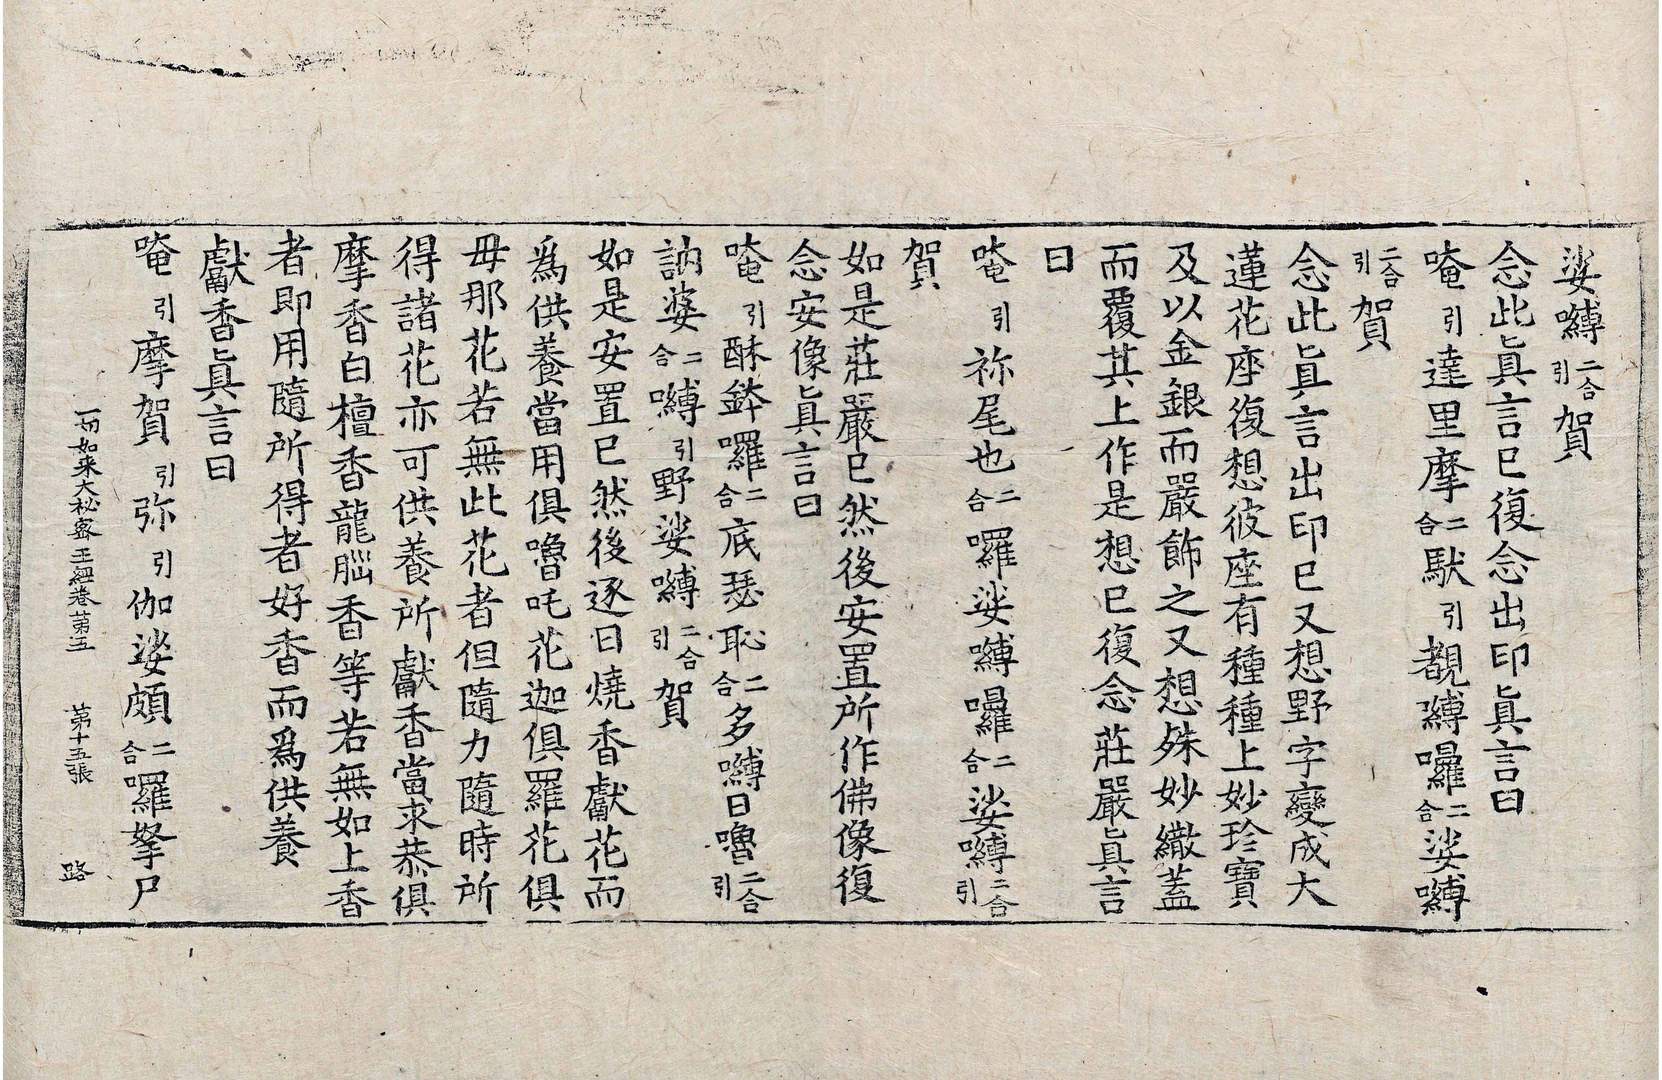 娑嚩二合引賀
念此眞言已復念出印眞言曰
唵引達里摩二合馱引覩嚩囉二合娑嚩
二合引賀
念此眞言出印已又想野字變成大
蓮花座復想彼座有種種上妙珍寶
及以金銀而嚴飾之又想殊妙繖蓋
而覆其上作是想已復念莊嚴眞言
曰
唵引祢尾也二合囉娑嚩囉二合娑嚩二合引
賀
如是莊嚴已然後安置所作佛像復
念安像眞言曰
唵引酥鉢囉二合底瑟恥二合多嚩日嚕二合引
訥婆二合嚩引野娑嚩二合引賀
如是安置已然後逐日燒香獻花而
爲供養當用俱嚕吒花迦俱羅花俱
毋那花若無此花者但隨力隨時所
得諸花亦可供養所獻香當求恭俱
摩香白檀香龍腦香等若無如上香
者即用隨所得者好香而爲供養
獻香眞言曰
唵引摩賀引弥引伽娑頗二合囉拏尸
一切如来大秘密王經卷第五 第十五張 路